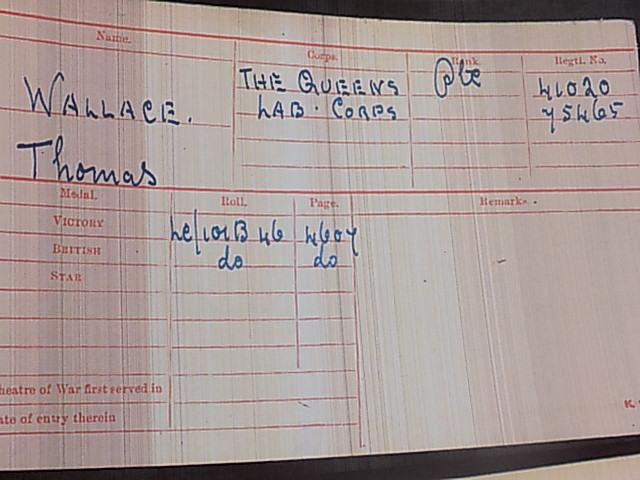 Name. Corps. Rank. Regtl. No.
WALLACE. THE QUEENS Pte 41020
LAB. CORPS 75465
Thomas
Medal. Roll. Page. Remarks.
VICTORY LC/101B46 4607
BRITISH do do
STAR
heatre of War first served in
ate of entry therein
K.